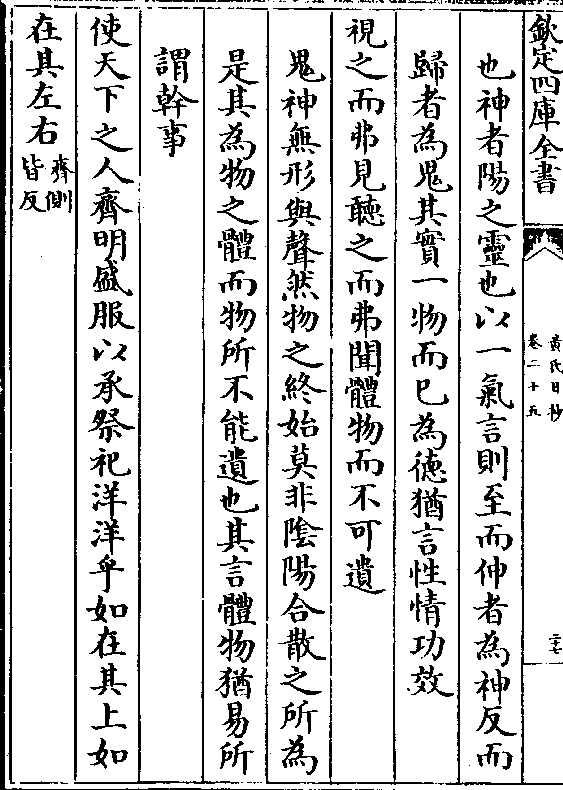 欽定四庫全書
黃氏日抄
卷二十五
二十七
也神者陽之靈也以一氣言則至而伸者為神反而
歸者為鬼其實一物而已為徳猶言性情功效
視之而弗見聽之而弗聞體物而不可遺
鬼神無形與聲然物之終始莫非陰陽合散之所為
是其為物之體而物所不能遺也其言體物猶易所
謂幹事
使天下之人齊明盛服以承祭祀洋洋乎如在其上如
在其左右齊側皆反